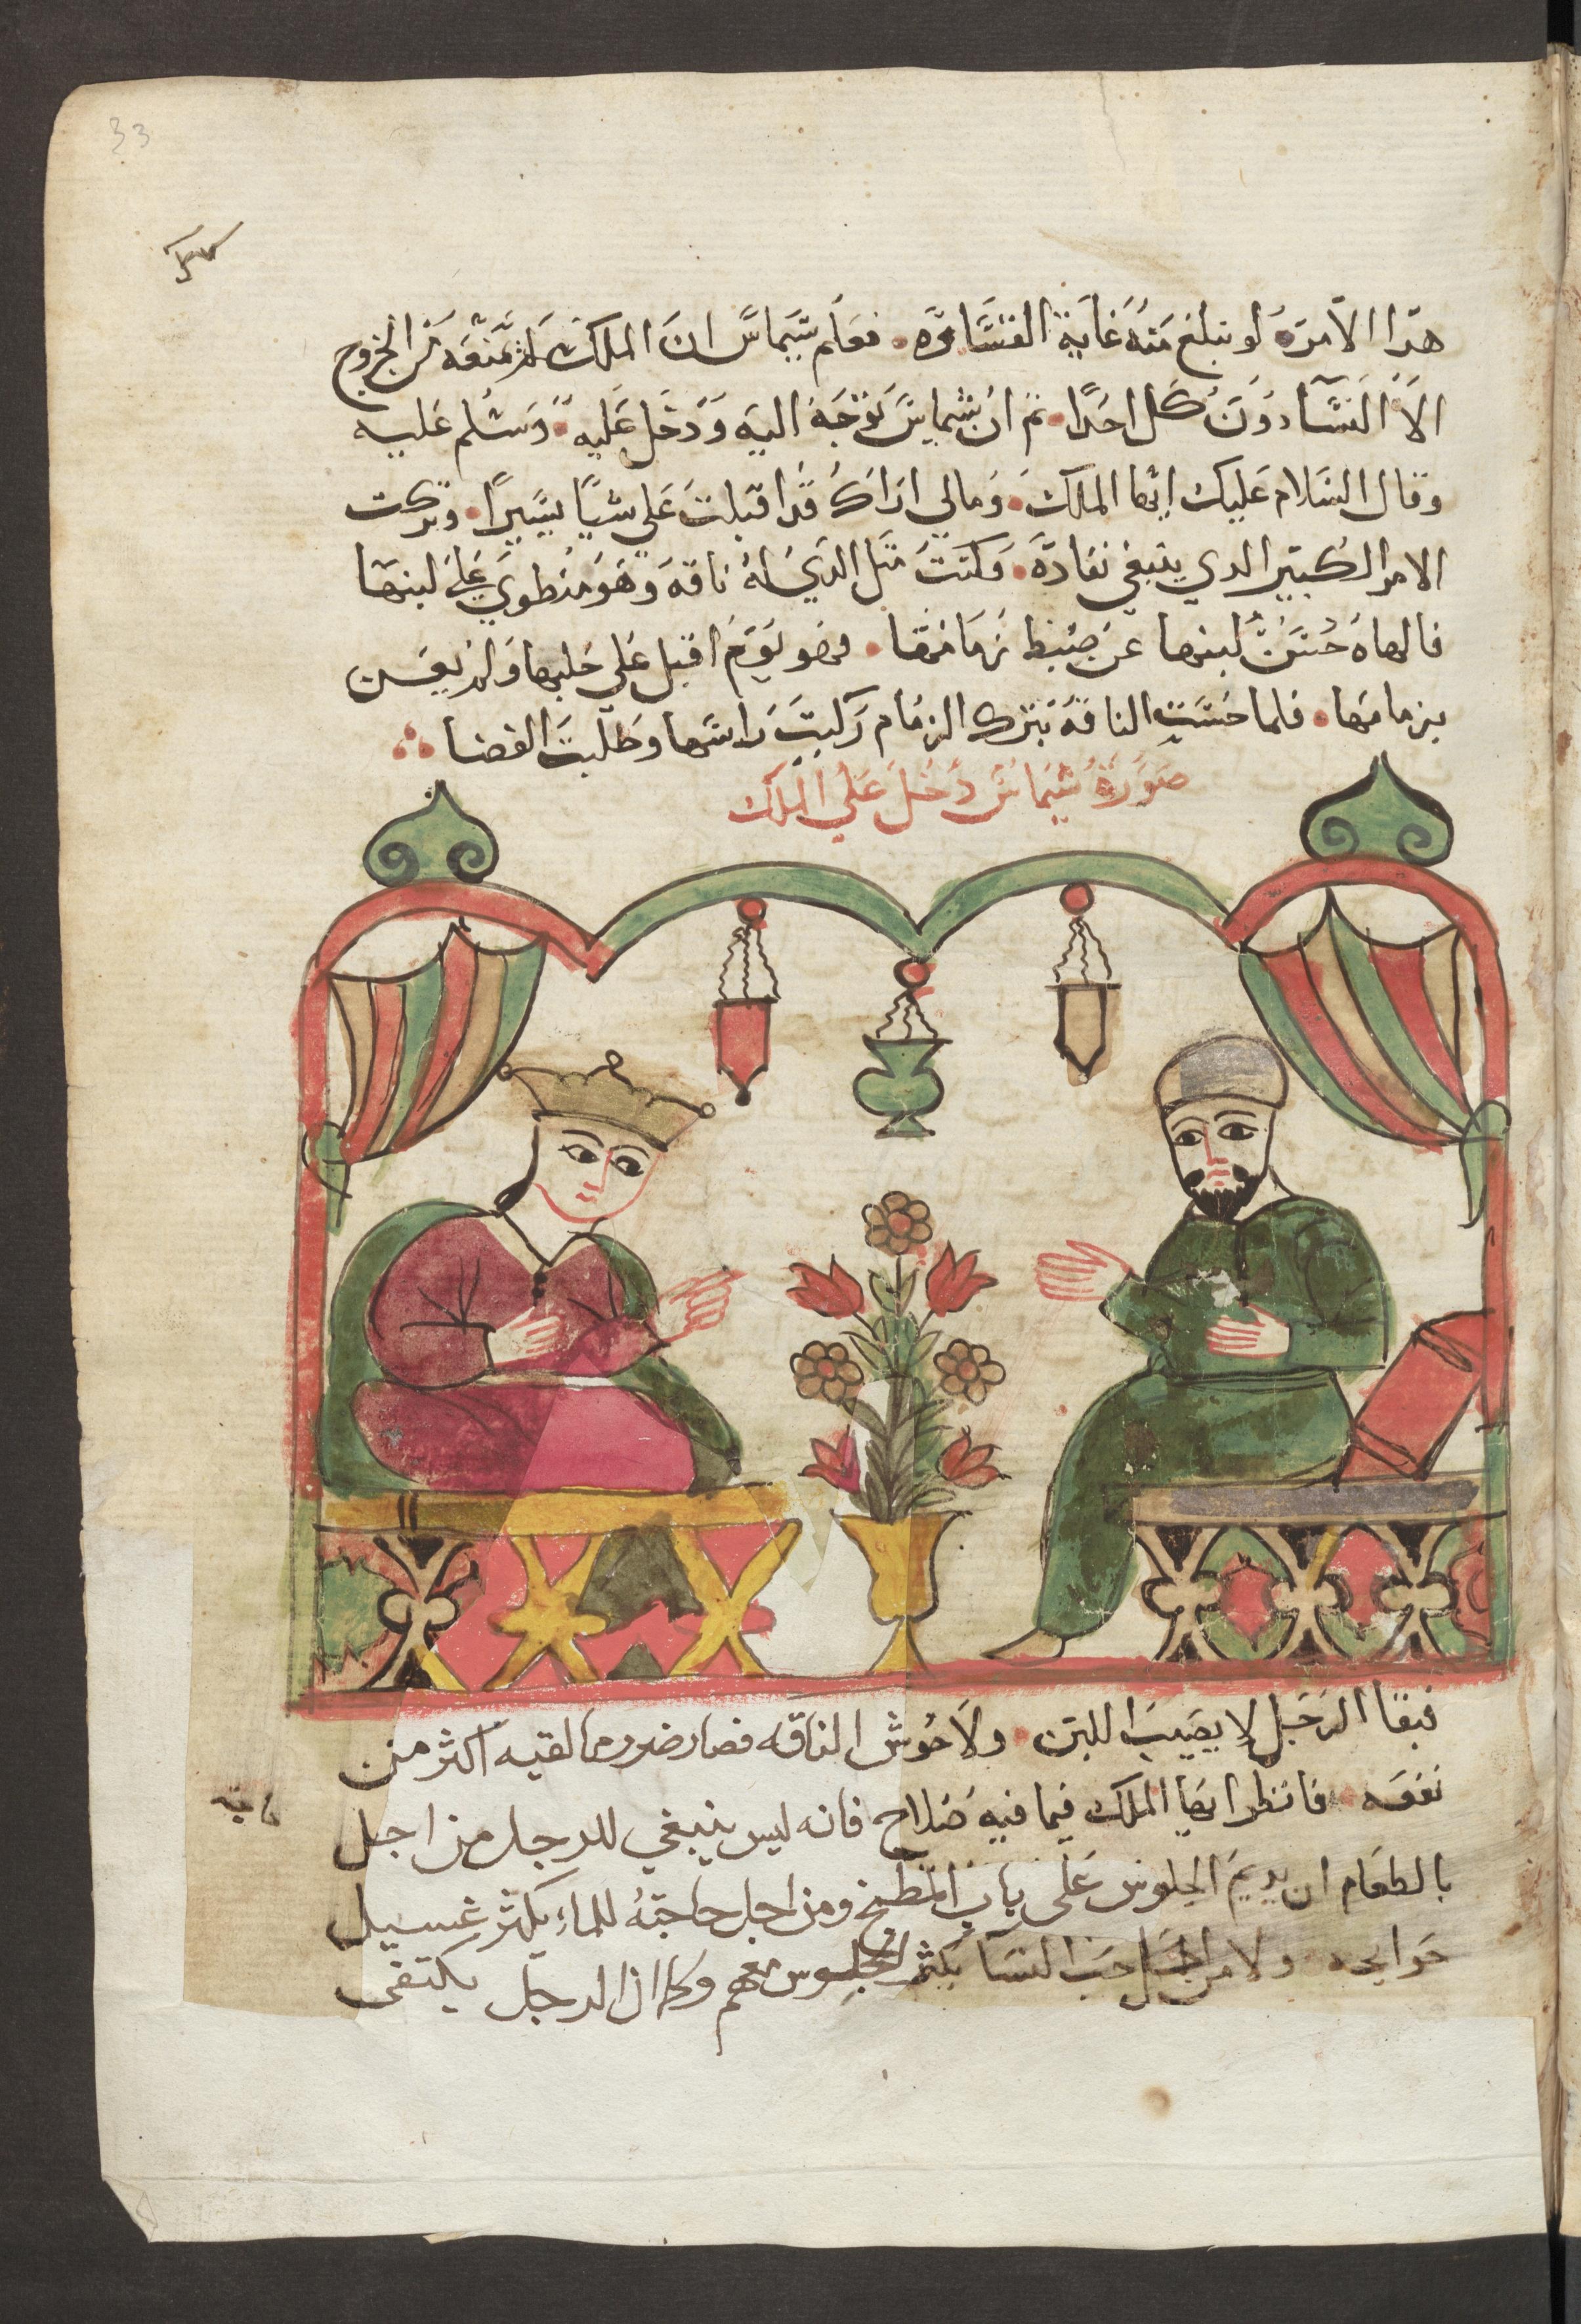 33
هذا الامره لو نبلغ منه غاية الفساده. فعلم شيماس ان الملك لم تمنعه من الخروج
الا النسا دون كل احدا. ثم ان شيماس توجه اليه ودخل عليه. وسلم عليه
وقال السلام عليك ايها الملك. ومالي اراك قد اقبلت علي شيا يسيرا. وتركت
الامر الكبير الدي ينبغي نفاده. وكنت مثل الدي له ناقه وهو منطوي علي لبنها
فالهاه حسن لبنها عن ضبط زمامها. فهو يوم اقبل علي حلبها ولم يعس
بزمامها. فلما حست الناقه بترك الزمام ركبت راسها وطلبت الفضا
صورة شيماس دخل علي الملك
فبقا الرجل لا يصيب اللبن. ولا حوش الناقه فصار ضرر ما لقيه اكثر من
نفعه. فانظر ايها الملك فيما فيه صلاح فانه ليس ينبغي للرجل من اجل
بالطعام ان يديم الجلوس على باب المطبخ ومن اجل حاجته للماء يكثر غسيل
حوايجه ولا من اجل حب النسا يكثر الجلوس معهم وكما ان الرجل يكتفى